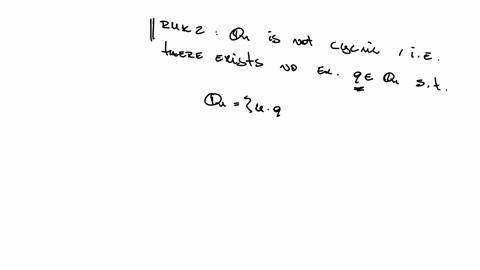 RMK 2 : Qn is not cyclic , i.e.
there exists no el. q ∈ Qn s.t.
Qn = { n . q